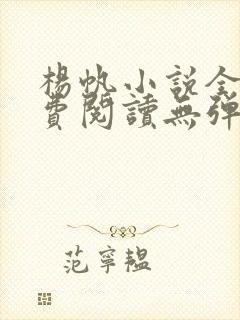 楊帆小說全
費閱讀無彈
范寧韞